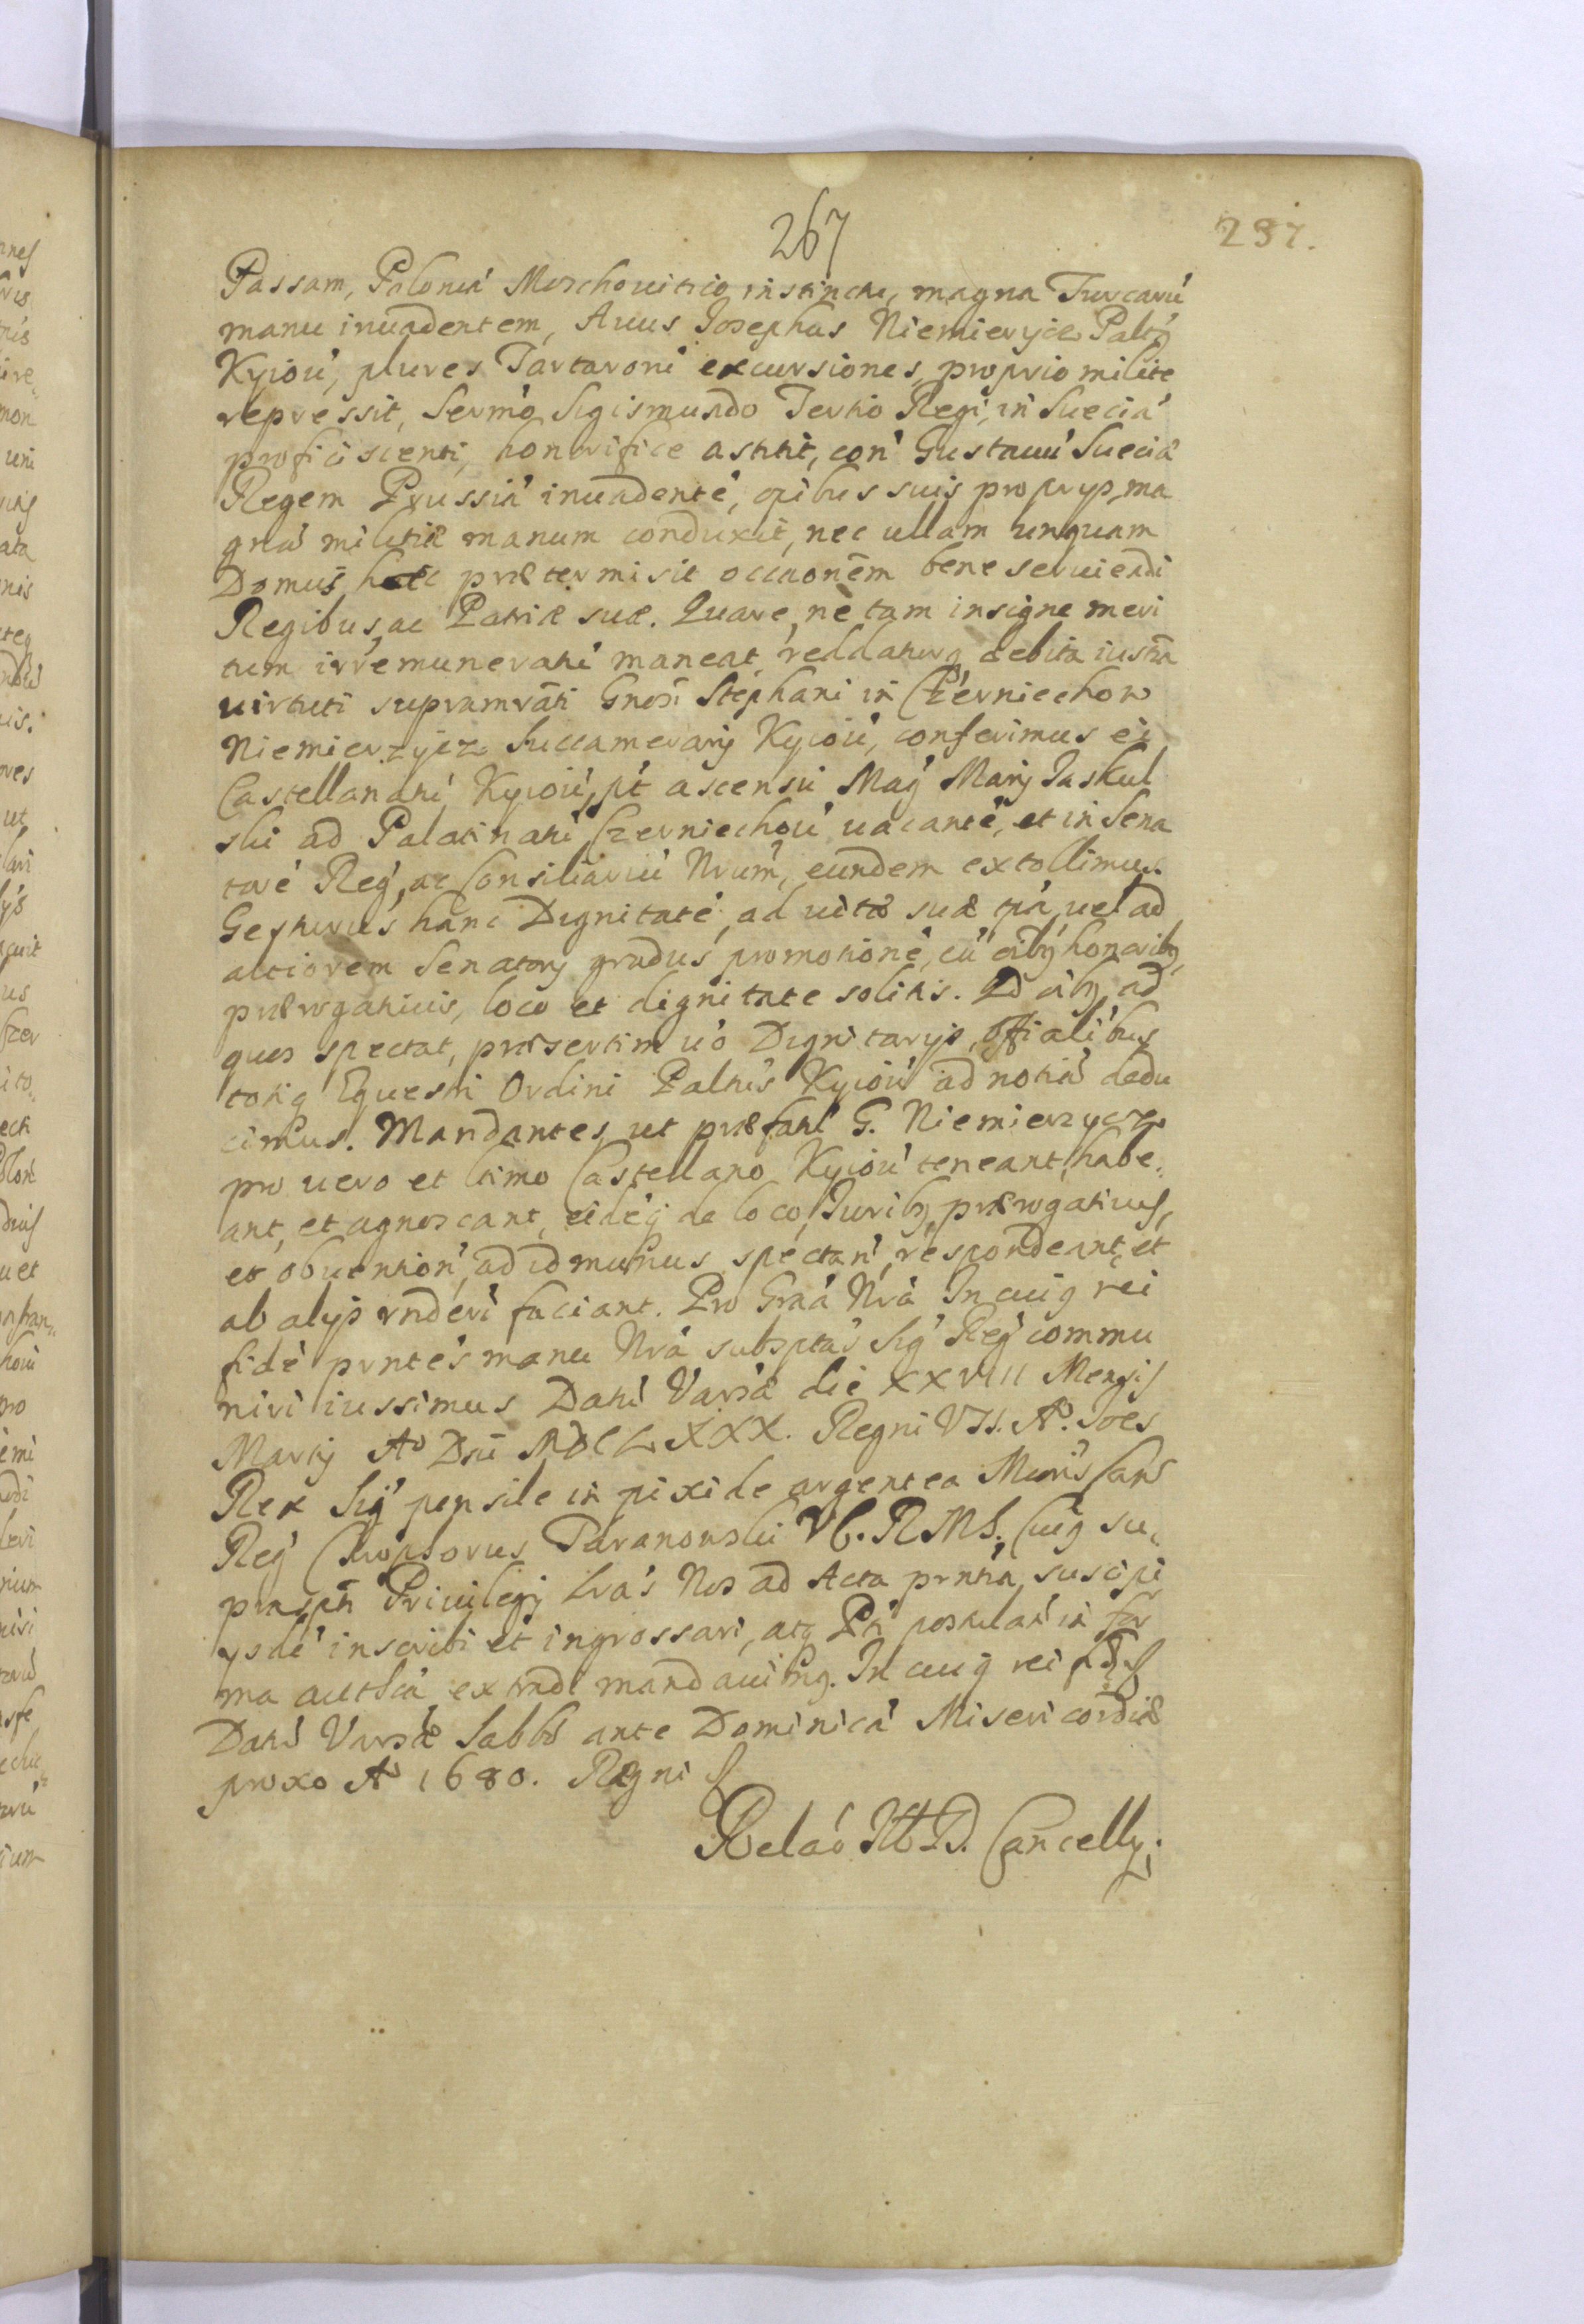 267
237.
Passam, Poloniá Moschouitico instinctu, magna Turcarú
manu inuadentem, Auus Josephus Niemierycz Palt9
Kyioú, plures Tartaroru excursiones, proprio milite
repressit, Sermó Sigismundo Tertio Regi, in Sueciá
proficiscenti, honorifice astitit, con' Gustauú Sueciæ
Regem Prussiá inuadenté, opibus suis proprys, ma
gná militiæ manum conduxit, nec ullam unquam
Domus hæc prætermisit occaonēm bene seruiendi
Regibus, ac Patriæ suæ. Quare, nè tam insigne meri
tum irremuneratú maneat, reddaturq debita iustā
uirtuti supramrāti Gnosi Stephani in Czerniechow
Niemierzycz Succamerarij Kyioú, conferimus ei
Castellanatú Kyioú, pt ascensu Mag' Marij Jaskul
ski ad Palatinatú Czerniechoú uacanté, et in Sena
toré Reg', ac Consiliariú Nrum, eundem extollimus.
Gesturus hanc Dignitaté, ad uitæ suæ tpá, uel ad
altiorem Senatorij gradus promotioné, cú oibq honoribq,
prærogatiuis, loco et dignitate solitis. Qd oibq, ad
quos spectat, præsertim uó Dignitarys, Offialibus
totiq Equestri Ordini Paltús Kyioú ad notiá dedu
cimus. Mandantes, ut præfatú G. Niemierzycz
pro uero et ltimo Castellano Kyioú teneant, habe.
ant, et agnoscant, eidéq de loco, Juribq, prærogatiuis,
et obuention', ad id munus spectan', respondeant, et
ab alys rnderi faciant. Pro Graá Nrá In cuiq rei
fidé prntes manu Nrá subsptas Sig' Reg' commu
niri iussimus Datú Varsæ die XXVIII Mensis
Martij Aº Dni MDCLXXX. Regni VII. Aº. Joes
Rex Sig' pensile in pixide argentea Minris Canc
Reg' Chrophorus Taranowski VC. R M S. Cuiq su.
praspti Priuilegij Lrás Nos ad Acta prntiá, suscipi
ysdé inscribi et ingrossari, atq Pti postulati in for
ma autticá extradi mandauimg. In cuiq rei fd.
Datú Varsæ Sabbo ante Dominicá Misericordiæ
proxo Aº 1680. Regni
Relaó Ill D. Cancelly.